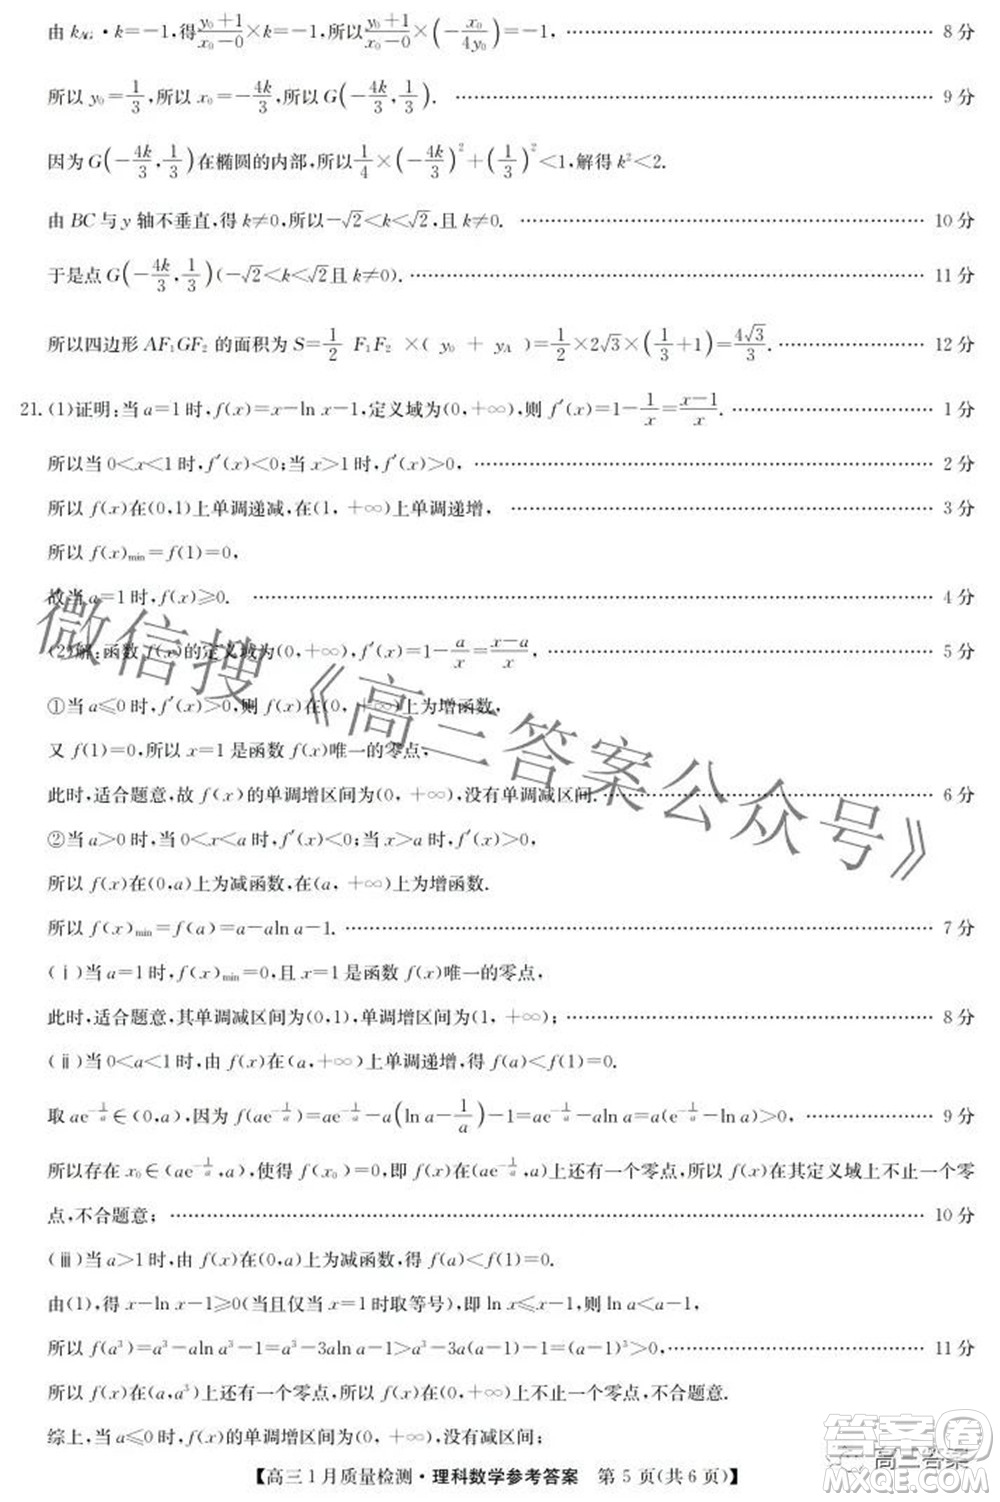 由 k_AG·k=-1,得(y₀+1)/(x₀-0)×k=-1,所以(y₀+1)/(x₀-0)×(-x₀/(4y₀))=-1, ………… 8分
所以 y₀=1/3,所以 x₀=-4k/3,所以G(-4k/3,1/3). ………… 9分
因为G(-4k/3,1/3)在椭圆的内部,所以1/4×(-4k/3)²+(1/3)²<1,解得 k²<2.
由 BC 与 y 轴不垂直,得 k≠0,所以-√2<k<√2,且 k≠0. ………… 10分
于是点G(-4k/3,1/3)(-√2<k<√2且 k≠0). ………… 11分
所以四边形 AF₁GF₂ 的面积为 S=1/2 F₁F₂ ×( y₀ + y_A )=1/2×2√3×(1/3+1)=4√3/3. ………… 12分
21.(1)证明:当 a=1时,f(x)=x-ln x-1,定义域为(0,+∞),则 f′(x)=1-1/x=(x-1)/x. ………… 1分
所以当 0<x<1时,f′(x)<0;当 x>1时,f′(x)>0, ………… 2分
所以 f(x)在(0,1)上单调递减,在(1,+∞)上单调递增, ………… 3分
所以 f(x)min=f(1)=0,
故当 a=1时,f(x)≥0. ………… 4分
(2)解:函数 f(x)的定义域为(0,+∞),f′(x)=1-a/x=(x-a)/x, ………… 5分
①当 a≤0时,f′(x)>0,则 f(x)在(0,+∞)上为增函数,
又 f(1)=0,所以 x=1是函数 f(x)唯一的零点,
此时,适合题意,故 f(x)的单调增区间为(0,+∞),没有单调减区间. ………… 6分
②当 a>0时,当 0<x<a时,f′(x)<0;当 x>a时,f′(x)>0,
所以 f(x)在(0,a)上为减函数,在(a,+∞)上为增函数.
所以 f(x)min=f(a)=a-aln a-1. ………… 7分
(ⅰ)当 a=1时,f(x)min=0,且 x=1是函数 f(x)唯一的零点,
此时,适合题意,其单调减区间为(0,1),单调增区间为(1,+∞); ………… 8分
(ⅱ)当 0<a<1时,由 f(x)在(a,+∞)上单调递增,得 f(a)<f(1)=0.
取 ae^(-1/a)∈(0,a),因为 f(ae^(-1/a))=ae^(-1/a)-a(ln a-1/a)-1=ae^(-1/a)-aln a=a(e^(-1/a)-ln a)>0, ………… 9分
所以存在 x₀∈(ae^(-1/a),a),使得 f(x₀)=0,即 f(x)在(ae^(-1/a),a)上还有一个零点,所以 f(x)在其定义域上不止一个零
点,不合题意; ………… 10分
(ⅲ)当 a>1时,由 f(x)在(0,a)上为减函数,得 f(a)<f(1)=0.
由(1),得 x-ln x-1≥0(当且仅当 x=1时取等号),即 ln x≤x-1,则 ln a<a-1,
所以 f(a³)=a³-aln a³-1=a³-3aln a-1>a³-3a(a-1)-1=(a-1)³>0, ………… 11分
所以 f(x)在(a,a³)上还有一个零点,所以 f(x)在(0,+∞)上不止一个零点,不合题意.
综上,当 a≤0时,f(x)的单调增区间为(0,+∞),没有单调减区间;
【高三1月质量检测·理科数学参考答案 第5页(共6页)】
微信搜《高三答案公众号》
答案圈
高三答案